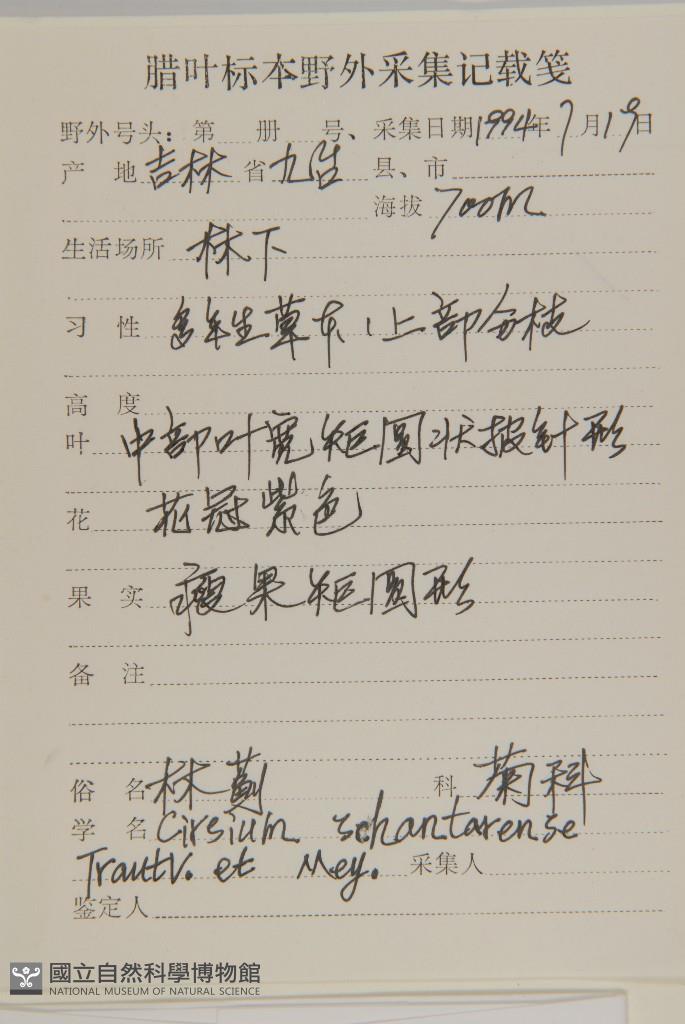 腊叶标本野外采集记载笺
野外号头：第 册 号、采集日期1994年7月19日
产 地 吉林 省 九站 县、市
海拔 700m
生活场所 林下
习 性 多年生草本，上部分枝
高 度
叶 中部叶宽矩圆状披针形
花 花冠紫色
果 实 瘦果矩圆形
备 注
俗 名 林蓟 科 菊科
学 名 Cirsium schantarense
Trautv. et Mey. 采集人
鉴定人
國立自然科學博物館
NATIONAL MUSEUM OF NATURAL SCIENCE